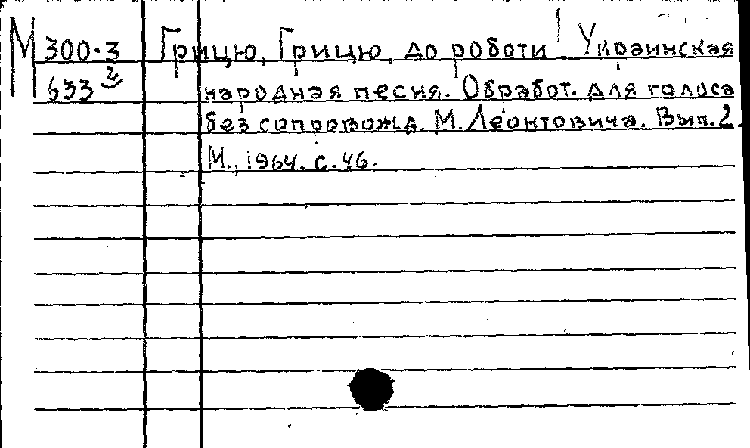 М 300-3 Грицю, Грицю, до роботи! Украинская
633 народная песня. Обработ. для голоса
без сопровожд. М. Леонтовича. Вып. 2.
М., 1964. с. 46.